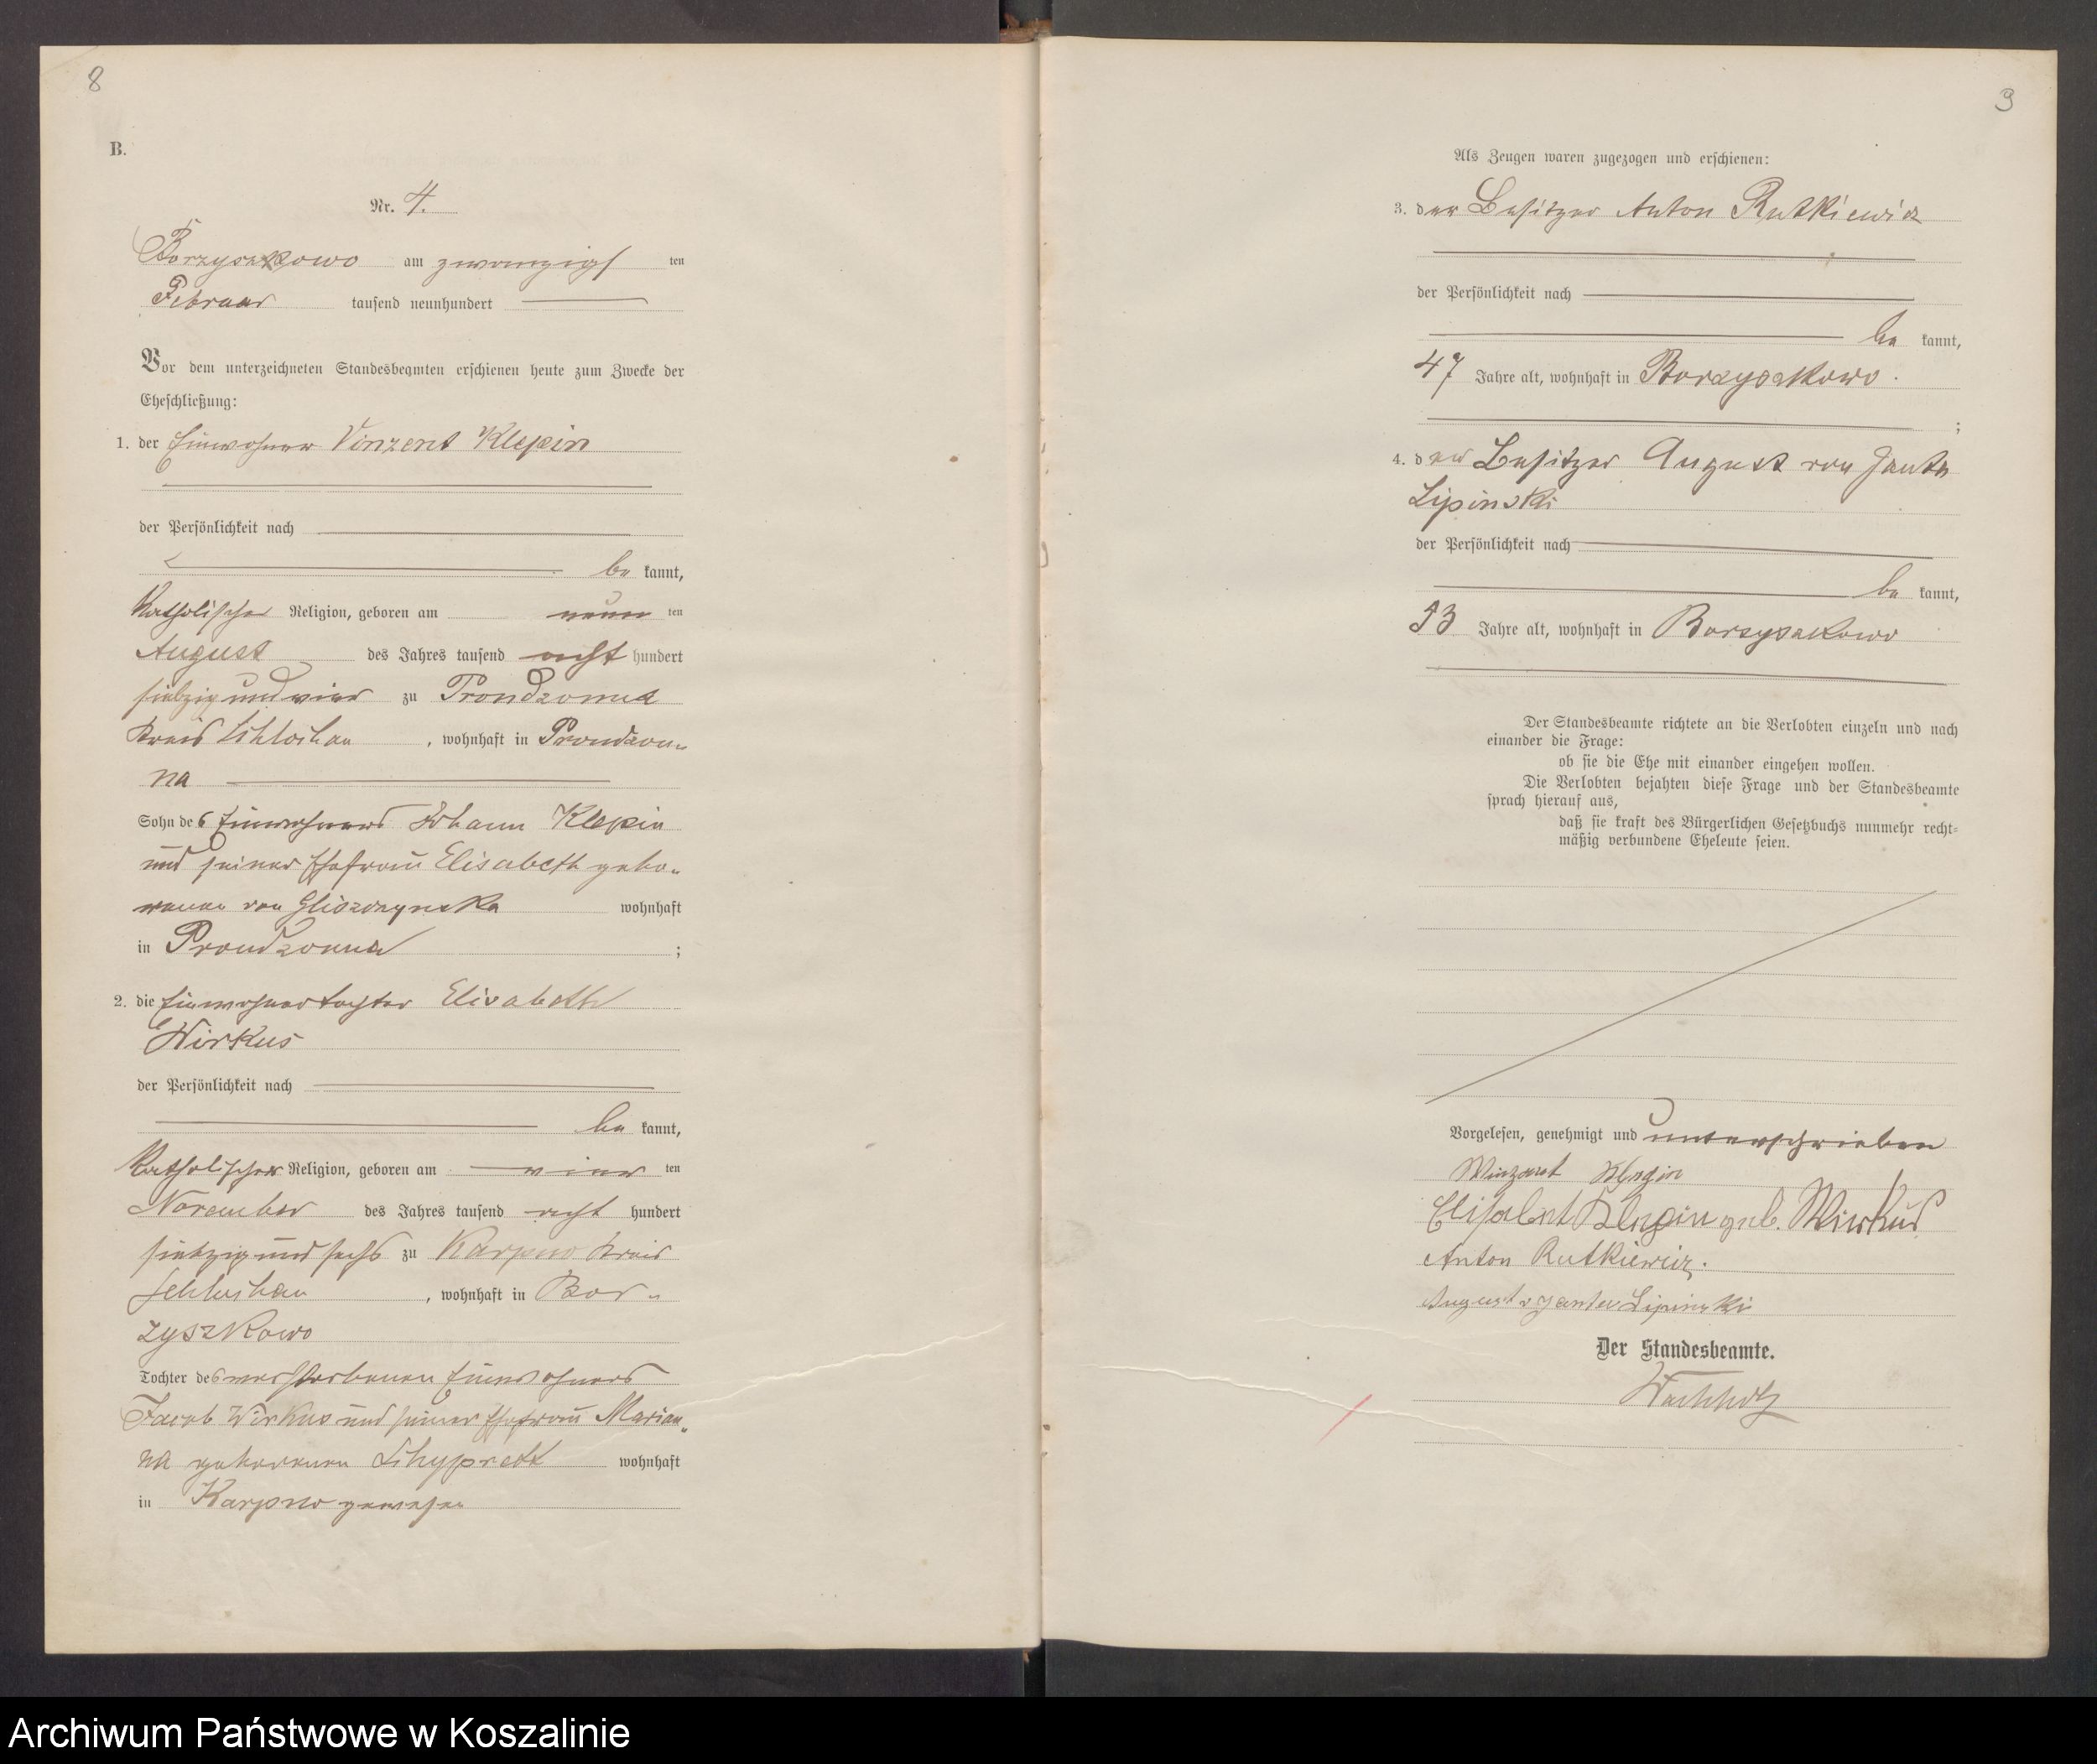 8
B.
Nr. 4.
Borzyszkowo am zwanzigsten
Februar tausend neunhundert
Vor dem unterzeichneten Standesbeamten erschienen heute zum Zwecke der
Eheschließung:
1. der Einwohner Vinzent Klepin
der Persönlichkeit nach
bekannt,
Katholischer Religion, geboren am neun ten
August des Jahres tausend acht hundert
siebzig und vier zu Prondzonna
Kreis Schlochau, wohnhaft in Prondzon-
na
Sohn des Einwohners Johann Klepin
und seiner Ehefrau Elisabeth gebo-
renen von Gliszczynska wohnhaft
in Prondzonna;
2. die Einwohnertochter Elisabeth
Wirkus
der Persönlichkeit nach
bekannt,
Katholischer Religion, geboren am vier ten
November des Jahres tausend acht hundert
siebzig und sechs zu Karpno Kreis
Schlochau, wohnhaft in Bor-
zyszkowo
Tochter des verstorbenen Einwohners
Jacob Wirkus und seiner Ehefrau Marian-
na geborenen wohnhaft
in Karpno gewesen
9
Als Zeugen waren zugezogen und erschienen:
3. der Besitzer Anton Rutkiewicz
der Persönlichkeit nach
bekannt,
47 Jahre alt, wohnhaft in Borzyszkowo.
;
4. der Besitzer August von Janta
Lipinski
der Persönlichkeit nach
bekannt,
53 Jahre alt, wohnhaft in Borzyszkowo
Der Standesbeamte richtete an die Verlobten einzeln und nach
einander die Frage:
ob sie die Ehe mit einander eingehen wollen.
Die Verlobten bejahten diese Frage und der Standesbeamte
sprach hierauf aus,
daß sie kraft des Bürgerlichen Gesetzbuchs nunmehr recht-
mäßig verbundene Eheleute seien.
Vorgelesen, genehmigt und unterschrieben
Winzent Klepin
Elisabet Klepin geb. Wirkus
Anton Rutkiewicz.
August v Janta Lipinski
Der Standesbeamte.
Wachholz
Archiwum Państwowe w Koszalinie